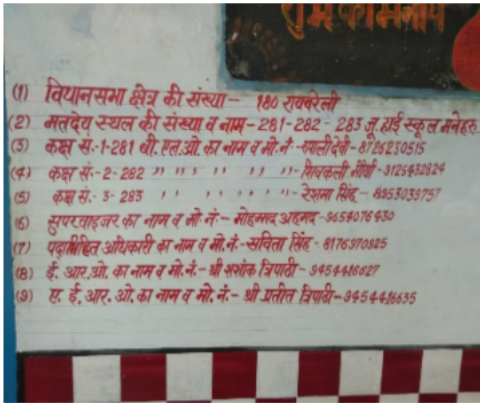 शुभ कामनायें
(1) विधानसभा क्षेत्र की संख्या - 180 रायबरेली
(2) मतदेय स्थल की संख्या व नाम - 281 - 282 - 283 जू हाई स्कूल मनेहरू
(3) कक्ष सं.-1-281 बी.एल.ओ का नाम व मो.नं -रुपालीदेवी- 8726230515
(4) कक्ष सं.-2-282 " " " " " " - शिवकली मौर्या - 9125432824
(5) कक्ष सं.-3-283 " " " " " " - रेशमा सिंह - 8953039757
(6) सुपरवाइजर का नाम व मो.नं.- मोहम्मद अहमद - 9654076430
(7) पदाभिहित अधिकारी का नाम व मो.नं.-सविता सिंह - 8176970925
(8) ई.आर.ओ. का नाम व मो.नं.- श्री शशांक त्रिपाठी - 9454416627
(9) ए.ई.आर.ओ. का नाम व मो.नं.- श्री प्रतीत त्रिपाठी - 9454416635